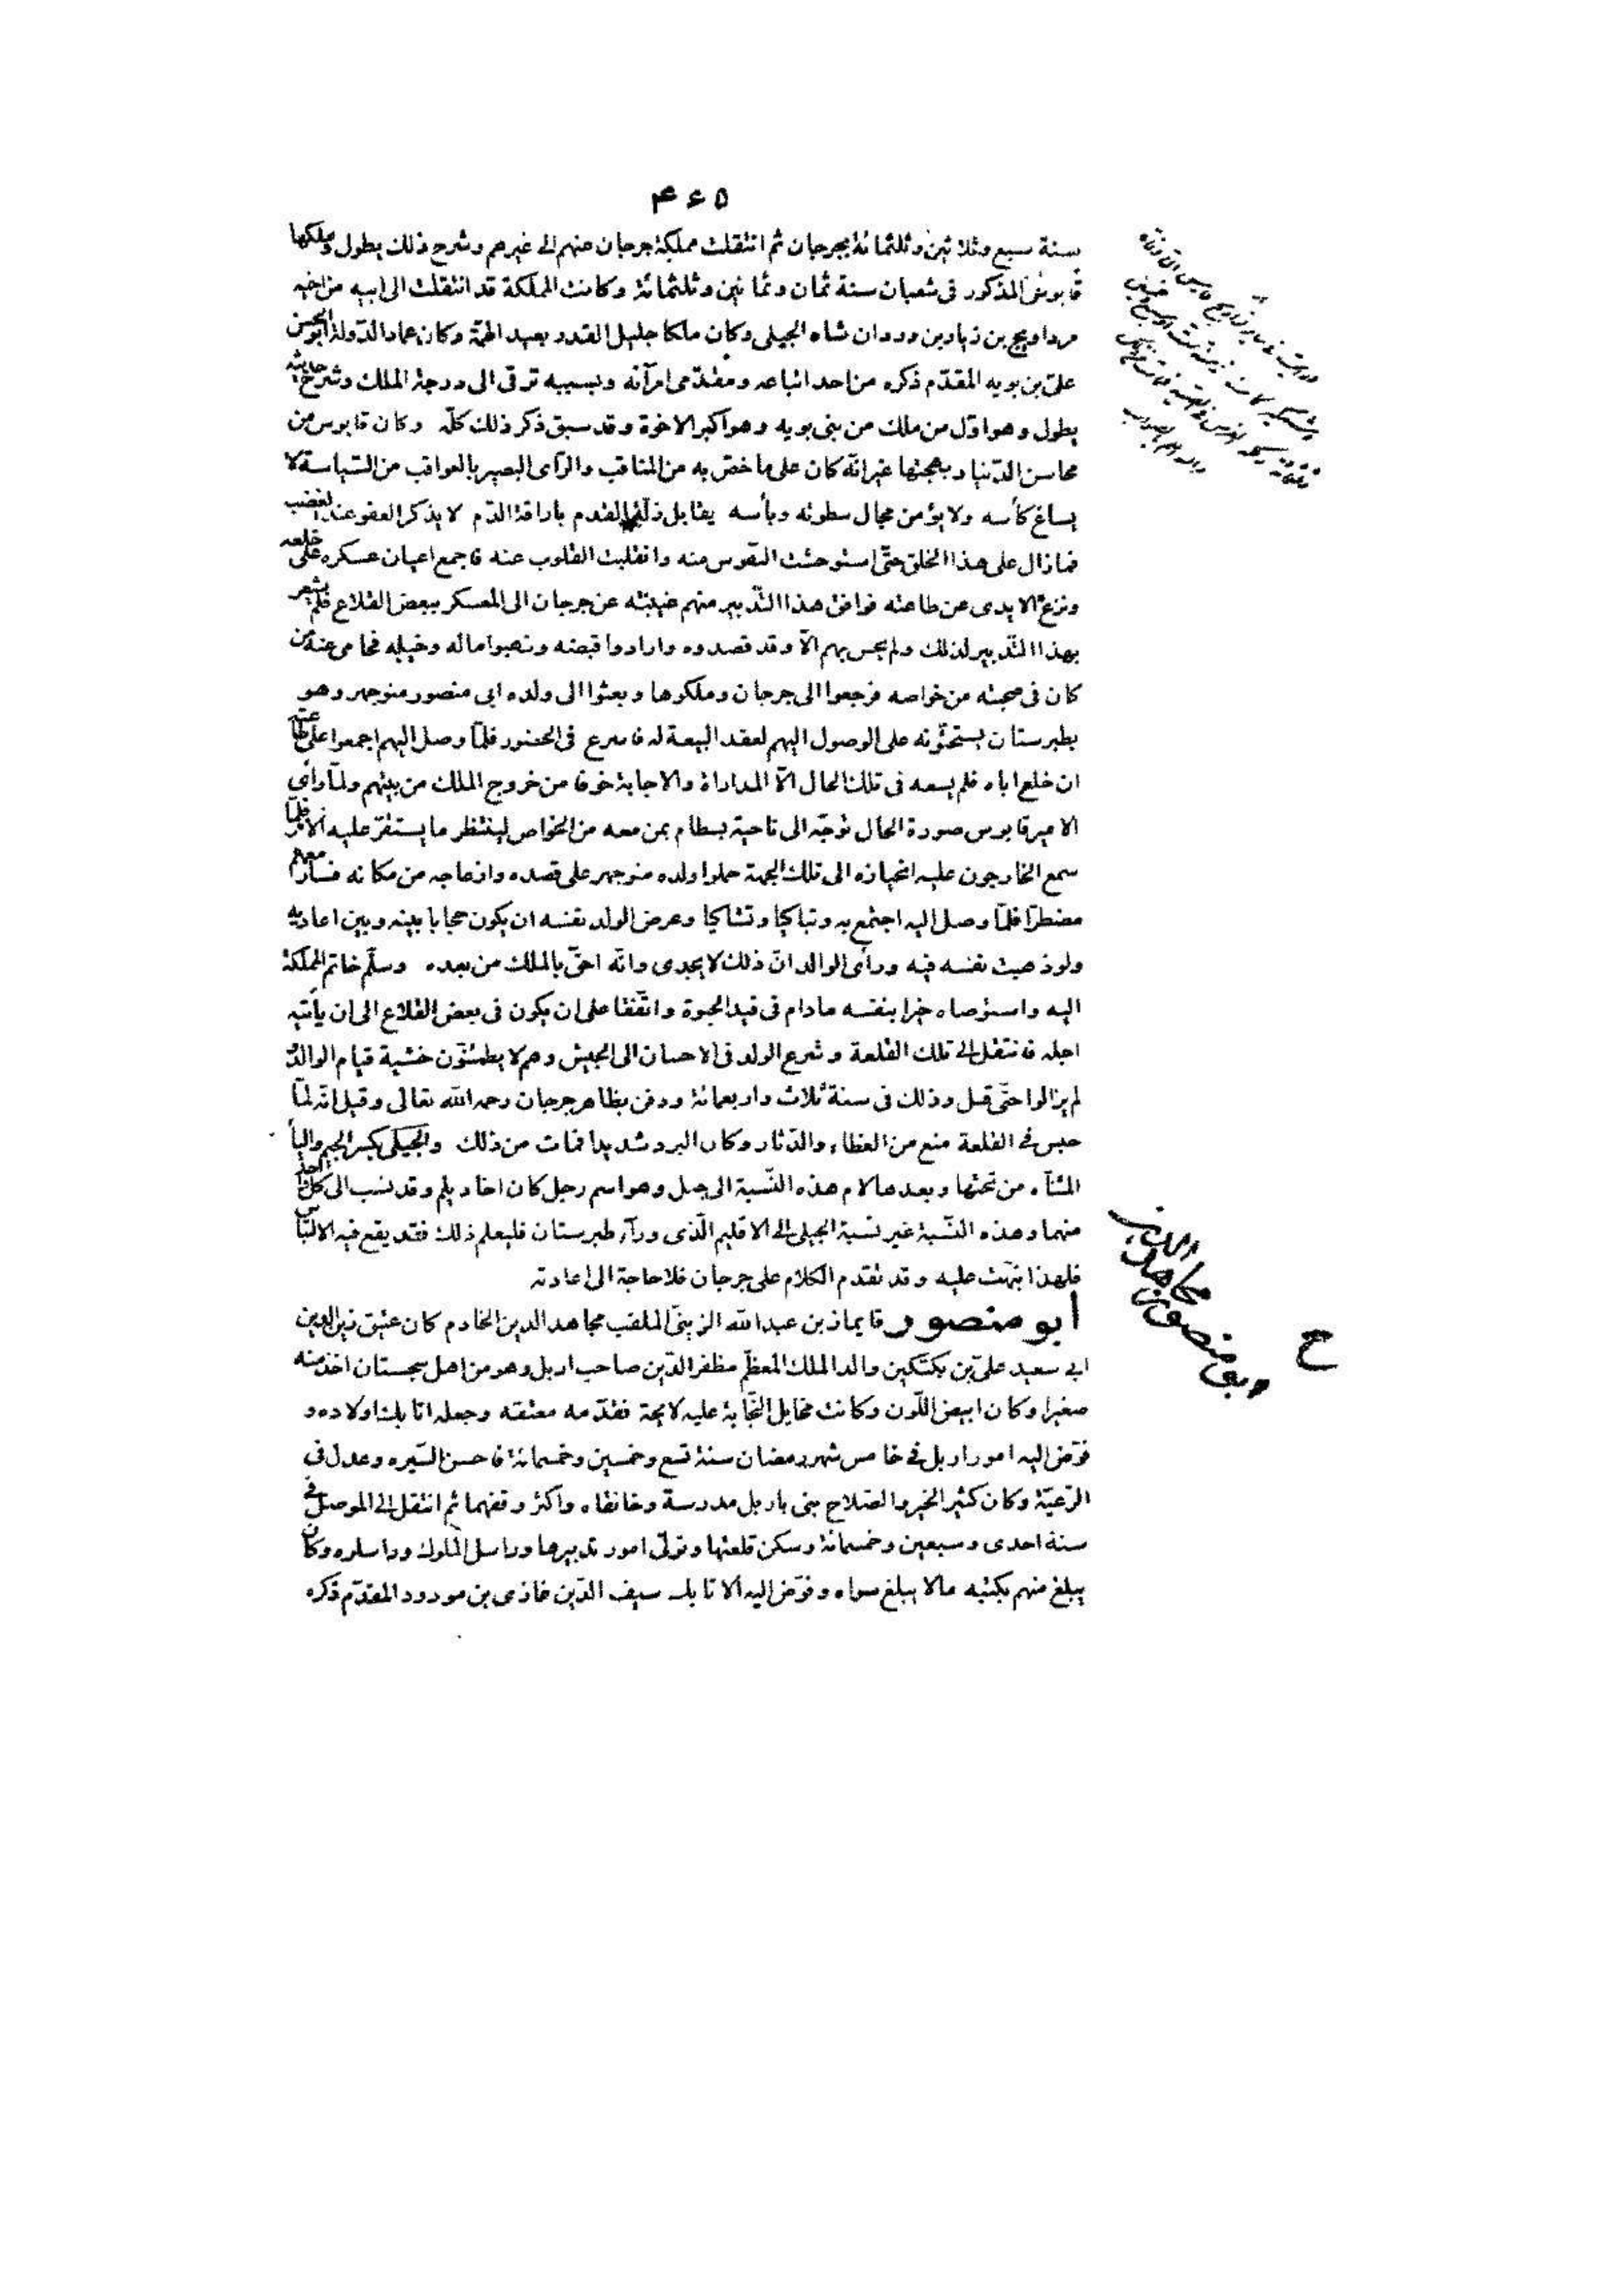 ۴۶۵
سنة سبع وثلاثين وثلثمائة بجرجان ثم انتقلت مملكة جرجان عنهم الى غيرهم وشرح ذلك يطول وملكها
قابوس المذكور فى شعبان سنة ثمان وثمانين وثلثمائة وكانت المملكة قد انتقلت الى ابيه من اخيه
مرداويج بن زيار بن وردان شاه الجيلى وكان ملكا جليل القدر بعيد الهمة وكان عماد الدّولة ابو الحسن
علىّ بن بويه المقدّم ذكره من احد اتباعه ومقدّمى امرآئه وبسببه ترقى الى درجة الملك وشرح حديثه
يطول وهو اوّل من ملك من بنى بويه وهو اكبر الاخوة وقد سبق ذكر ذلك كلّه وكان قابوس من
محاسن الدّنيا وبهجتها غير انّه كان على ما خصّ به من المناقب والرّأى البصير بالعواقب من السّياسة لا
يساغ كأسه ولا يؤمن مجال سطوته وبأسه يقابل زلّة القدم باراقة الدّم لا يذكر العفو عند الغضب
فما زال على هذا الخلق حتّى استوحشت النّفوس منه وانقلبت القلوب عنه فاجمع اعيان عسكره على خلعه
ونزع الايدى عن طاعته فوافق هذا التّدبير منهم غيبته عن جرجان الى المعسكر ببعض القلاع فلم يشعر
بهذا التّدبير لذلك ولم يحس بهم الّا وقد قصدوه وارادوا قبضه ونهبوا ماله وخيله فحامى عنه من
كان فى صحبته من خواصه فرجعوا الى جرجان وملكوها وبعثوا الى ولده ابى منصور منوجهر وهو
بطبرستان يستحثّونه على الوصول اليهم لعقد البيعة له فاسرع فى الحضور فلمّا وصل اليهم اجمعوا على طاعته
ان خلع اباه فلم يسعه فى تلك الحال الّا المداراة والاجابة خوفا من خروج الملك من بيتهم ولمّا رأى
الامير قابوس صورة الحال توجّه الى ناحية بسطام بمن معه من الخواص لينتظر ما يستقرّ عليه الامر فلمّا
سمع الخارجون عليه انحيازه الى تلك الجهة حملوا ولده منوجهر على قصده وازعاجه من مكانه فسار معهم
مضطرّا فلمّا وصل اليه اجتمع به وتباكيا وتشاكيا وعرض الولد نفسه ان يكون حجابا بينه وبين اعاديه
ولو ذهبت نفسه فيه ورأى الوالد انّ ذلك لا يجدى وانّه احقّ بالملك من بعده وسلّم خاتم المملكة
اليه واستوصاه خيرا بنفسه ما دام فى قيد الحيوة واتّفقا على ان يكون فى بعض القلاع الى ان يأتيه
اجله فانتقل الى تلك القلعة وشرع الولد فى الاحسان الى الجيش وهم لا يطمئنّون خشية قيام الوالد
لم يزالوا حتّى قتل وذلك فى سنة ثلاث واربعمائة ودفن بظاهر جرجان رحمه الله تعالى وقيل انّه لمّا
حبس فى القلعة منع من الغطاء والدّثار وكان البرد شديدا فمات من ذلك والجيلى بكسر الجيم واليأ
المثنّاة من تحتها وبعدها لام هذه النّسبة الى جيل وهو اسم رجل كان اخا ديلم وقد نسب الى كل واحد
منهما وهذه النّسبة غير نسبة الجيلى الى الاقليم الّذى ورآء طبرستان فليعلم ذلك فقد يقع فيه الالتباس
فلهذا نبّهت عليه وقد تقدم الكلام على جرجان فلا حاجة الى اعادته
أبو منصور قايماز بن عبد الله الزينىّ الملقب مجاهد الدين الخادم كان عتيق زين الدين
ابى سعيد علىّ بن بكتكين والد الملك المعظّم مظفر الدّين صاحب اربل وهو من اهل سجستان اخذ منه
صغيرا وكان ابيض اللّون وكانت مخايل النّجابة عليه لايحة فقدّمه معتقه وجعله اتابك اولاده و
فوّض اليه امور اربل فى خامس شهر رمضان سنة تسع وخمسين وخمسمائة فاحسن السّيره وعدل فى
الرّعيّة وكان كثير الخير والصّلاح بنى باربل مدرسة وخانقاه واكثر وقفهما ثم انتقل الى الموصل فى
سنة احدى وسبعين وخمسمائة وسكن قلعتها وتولّى امور تدبيرها وراسل الملوك وراسلوه وكان
يبلغ منهم بكتبه ما لا يبلغ سواه وفوّض اليه الاتابك سيف الدّين غازى بن مودود المقدّم ذكره
ابو منصور
مجاهد الدين
ح